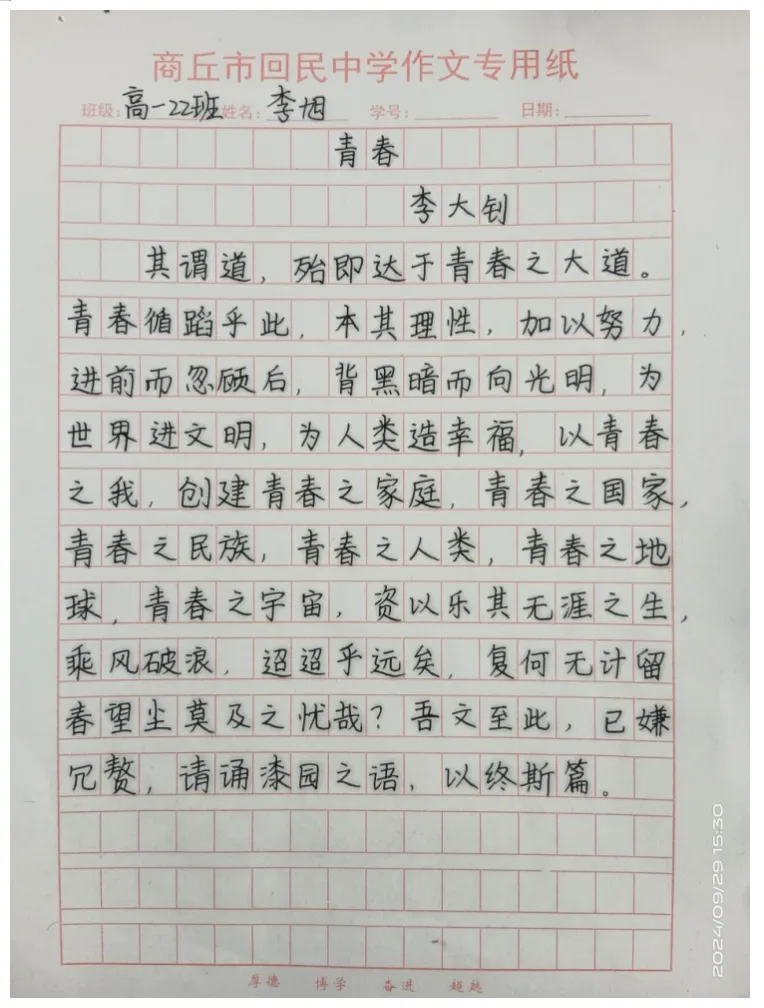 商丘市回民中学作文专用纸
班级:高一22班 姓名:李旭 学号: 日期:
青春
李大钊
其谓道，殆即达于青春之大道。
青春循蹈乎此，本其理性，加以努力，
进前而忽顾后，背黑暗而向光明，为
世界进文明，为人类造幸福，以青春
之我，创建青春之家庭，青春之国家，
青春之民族，青春之人类，青春之地
球，青春之宇宙，资以乐其无涯之生，
乘风破浪，迢迢乎远矣，复何无计留
春望尘莫及之忧哉？吾文至此，已嫌
冗赘，请诵漆园之语，以终斯篇。
厚德 博学 奋进 超越
2024/09/29 15:30